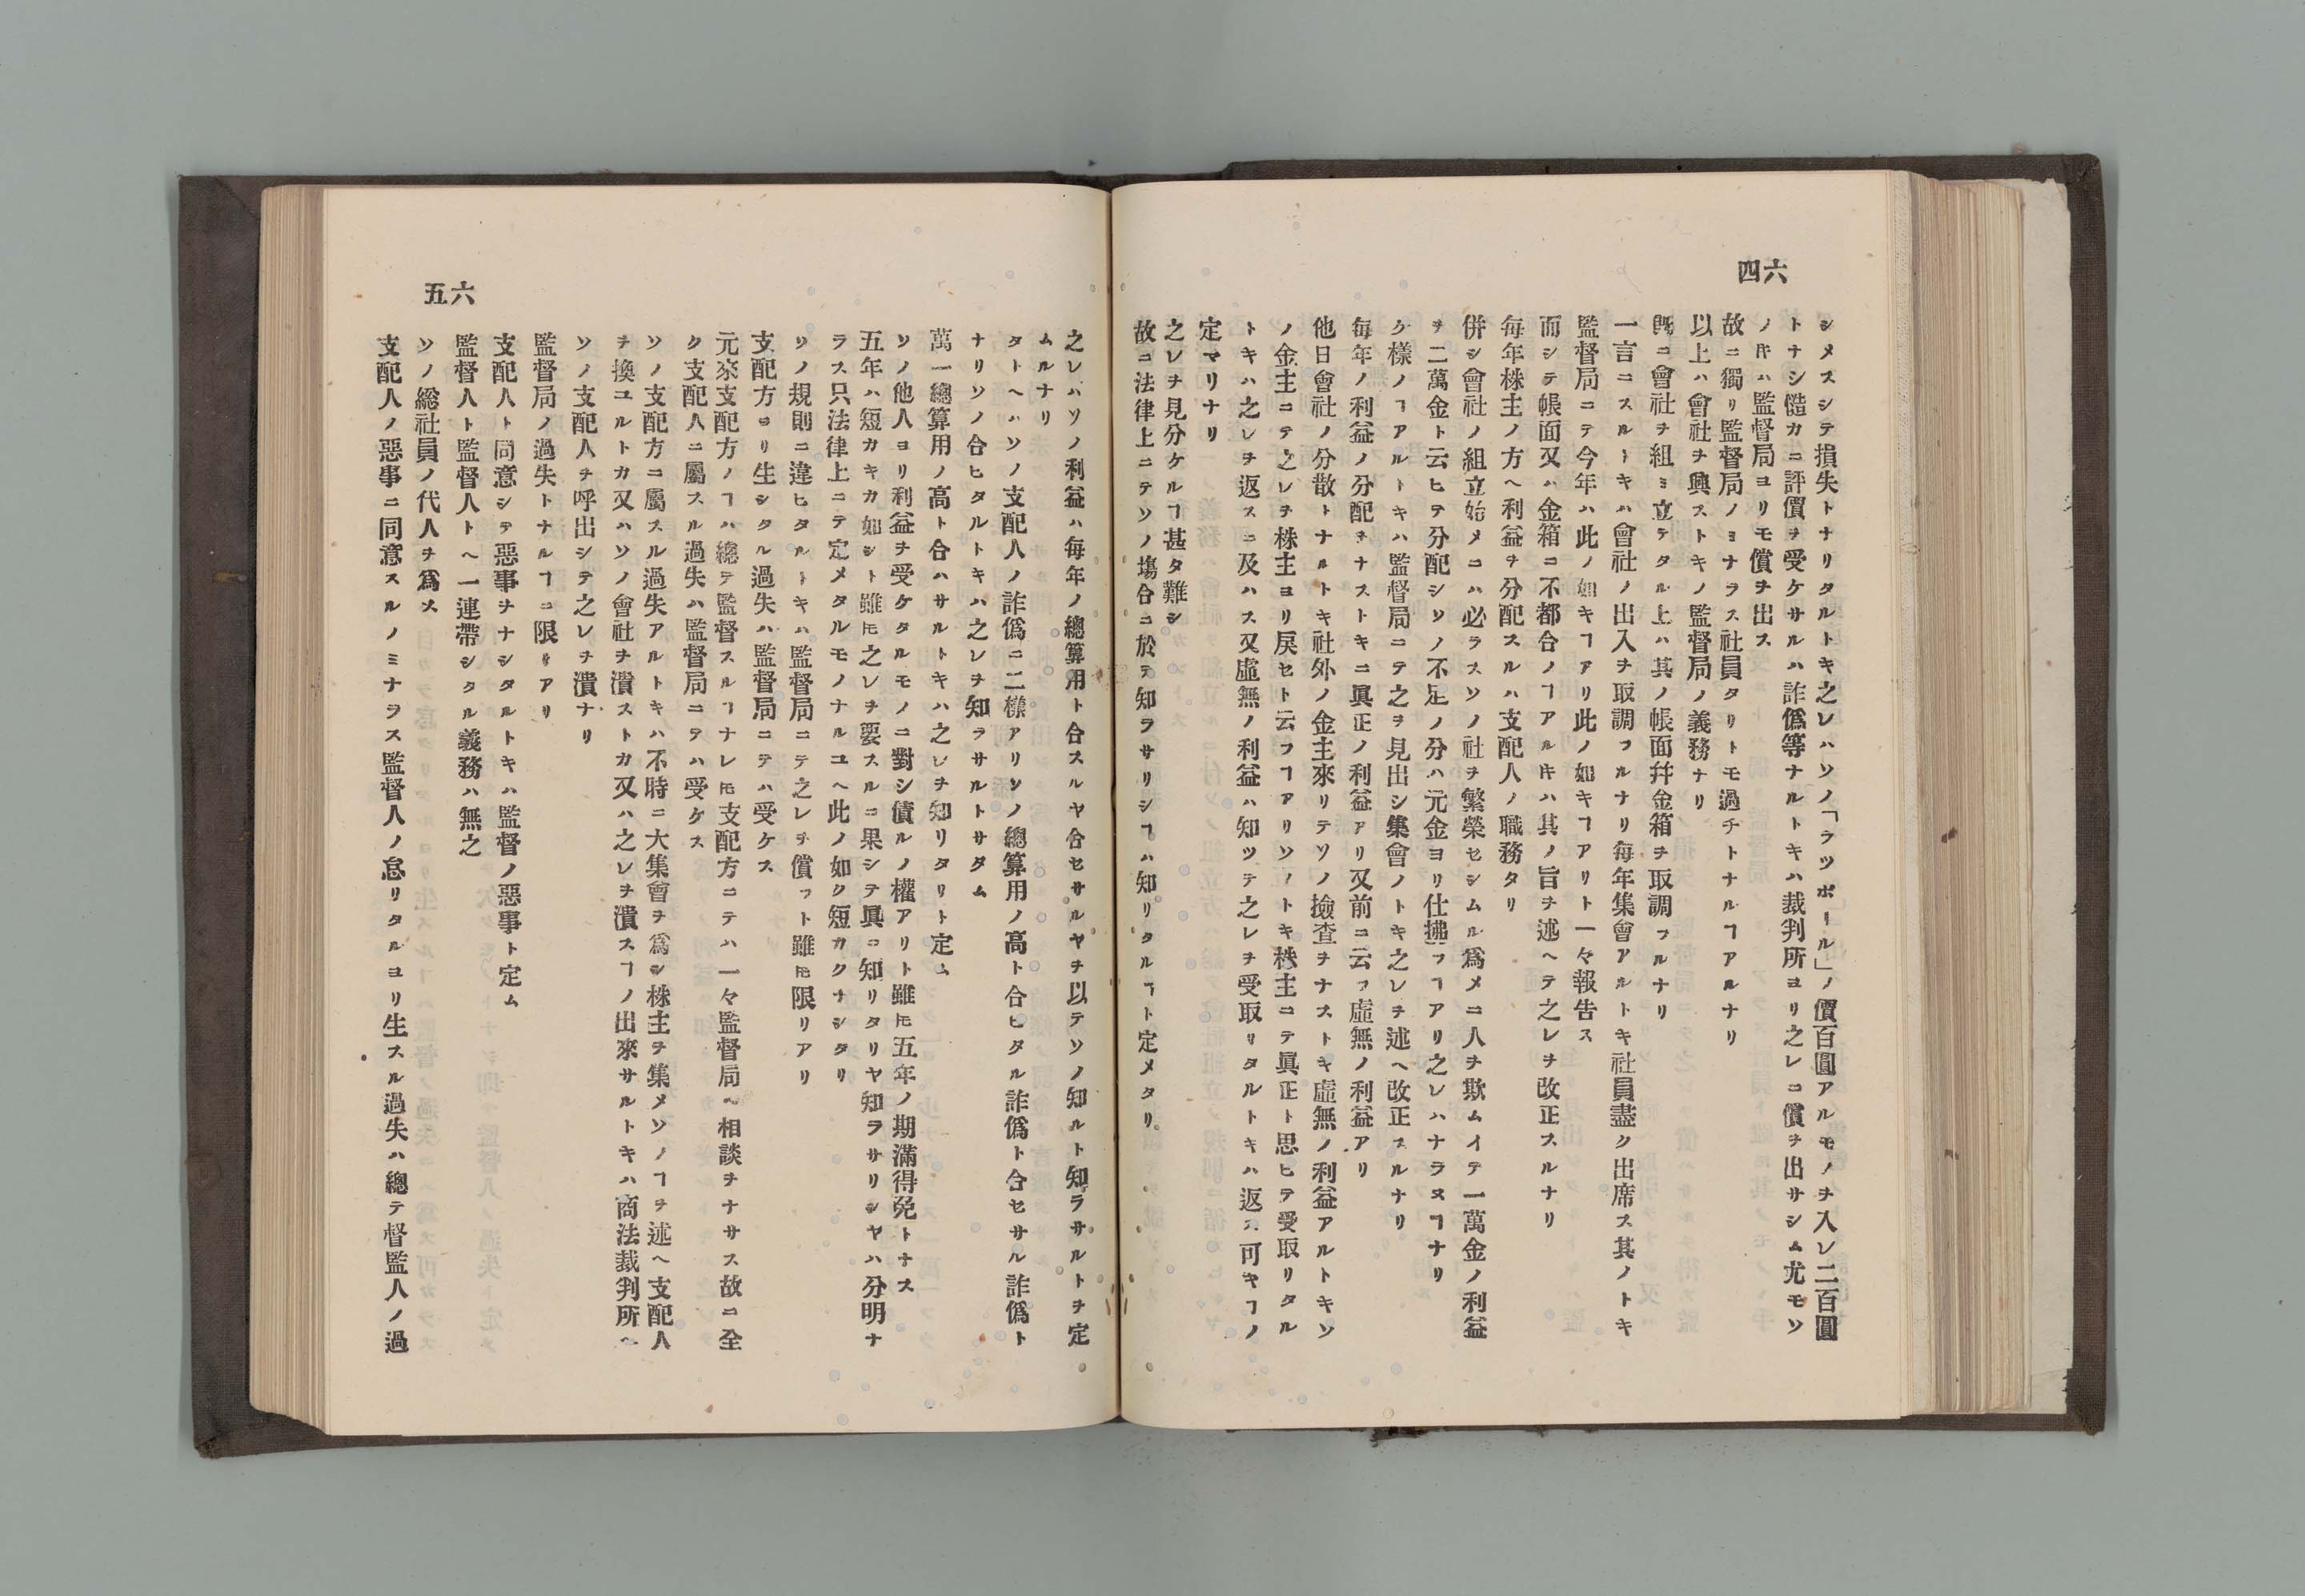 六四
シメスシテ損失トナリタルトキ之レハソノ「ラツポール」ノ價百圓アルモノヲ入レ二百圓
トナシ慥カニ評價ヲ受ケサルハ詐僞等ナルトキハ裁判所ヨリ之レニ償ヲ出サシム尤モソ
ノ𪜈ハ監督局ヨリモ償ヲ出ス
故ニ獨リ監督局ノヨナラス社員タリトモ過チトナルヿアルナリ
以上ハ會社ヲ興ストキノ監督局ノ義務ナリ
旣ニ會社ヲ組ミ立テタル上ハ其ノ帳面幷金箱ヲ取調フルナリ
一言ニスルトキハ會社ノ出入ヲ取調フルナリ每年集會アルトキ社員盡ク出席ス其ノトキ
監督局ニテ今年ハ此ノ如キヿアリ此ノ如キヿアリト一々報吿ス
而シテ帳面又ハ金箱ニ不都合ノヿアル𪜈ハ其ノ旨ヲ述ヘテ之レヲ改正スルナリ
每年株主ノ方ヘ利益ヲ分配スルハ支配人ノ職務タリ
併シ會社ノ組立始メニハ必ラスソノ社ヲ繁榮セシムル爲メニ人ヲ欺ムイテ一萬金ノ利益
ヲ二萬金ト云ヒテ分配シソノ不足ノ分ハ元金ヨリ仕拂フヿアリ之レハナラヌヿナリ
ケ樣ノヿアルトキハ監督局ニテ之ヲ見出シ集會ノトキ之レヲ述ヘ改正スルナリ
每年ノ利益ノ分配ヲナストキニ眞正ノ利益アリ又前ニ云フ虛無ノ利益アリ
他日會社ノ分散トナルトキ社外ノ金主來リテソノ撿査ヲナストキ虛無ノ利益アルトキソ
ノ金主ニテ之レヲ株主ヨリ戾セト云フヿアリソノトキ株主ニテ眞正ト思ヒテ受取リタル
トキハ之レヲ返スニ及ハス又虛無ノ利益ハ知ツテ之レヲ受取リタルトキハ返ス可キヿノ
定マリナリ
之レヲ見分ケルヿ甚タ難シ
故ニ法律上ニテソノ塲合ニ於テ知ラサリシヿハ知リタルヿト定メタリ
六五
之レハソノ利益ハ每年ノ總算用ト合スルヤ合セサルヤヲ以テソノ知ルト知ラサルトヲ定
ムルナリ
タトヘハソノ支配人ノ詐僞ニ二樣アリソノ總算用ノ高ト合ヒタル詐僞ト合セサル詐僞ト
ナリソノ合ヒタルトキハ之レヲ知ラサルトサタム
萬一總算用ノ高ト合ハサルトキハ之レヲ知リタリト定ム
ソノ他人ヨリ利益ヲ受ケタルモノニ對シ債ルノ權アリト雖𪜈五年ノ期滿得免トナス
五年ハ短カキカ如シト雖𪜈之レヲ要スルニ果シテ眞ニ知リタリヤ知ラサリシヤハ分明ナ
ラス只法律上ニテ定メタルモノナルユヘ此ノ如ク短カクナシタリ
ソノ規則ニ違ヒタルトキハ監督局ニテ之レヲ償フト雖𪜈限リアリ
支配方ヨリ生シタル過失ハ監督局ニテハ受ケス
元來支配方ノヿハ總テ監督スルヿナレ𪜈支配方ニテハ一々監督局ヘ相談ヲナサス故ニ全
ク支配人ニ屬スル過失ハ監督局ニテハ受ケス
ソノ支配方ニ屬スル過失アルトキハ不時ニ大集會ヲ爲シ株主ヲ集メソノヿヲ述ヘ支配人
ヲ換ユルトカ又ハソノ會社ヲ潰ストカ又ハ之レヲ潰スヿノ出來サルトキハ商法裁判所ヘ
ソノ支配人ヲ呼出シテ之レヲ潰ナリ
監督局ノ過失トナルヿニ限リアリ
支配人ト同意シテ惡事ヲナシタルトキハ監督ノ惡事ト定ム
監督人ト監督人トヘ一連帶シタル義務ハ無之
ソノ総社員ノ代人ヲ爲ス
支配人ノ惡事ニ同意スルノミナラス監督人ノ怠リタルヨリ生スル過失ハ總テ督監人ノ過